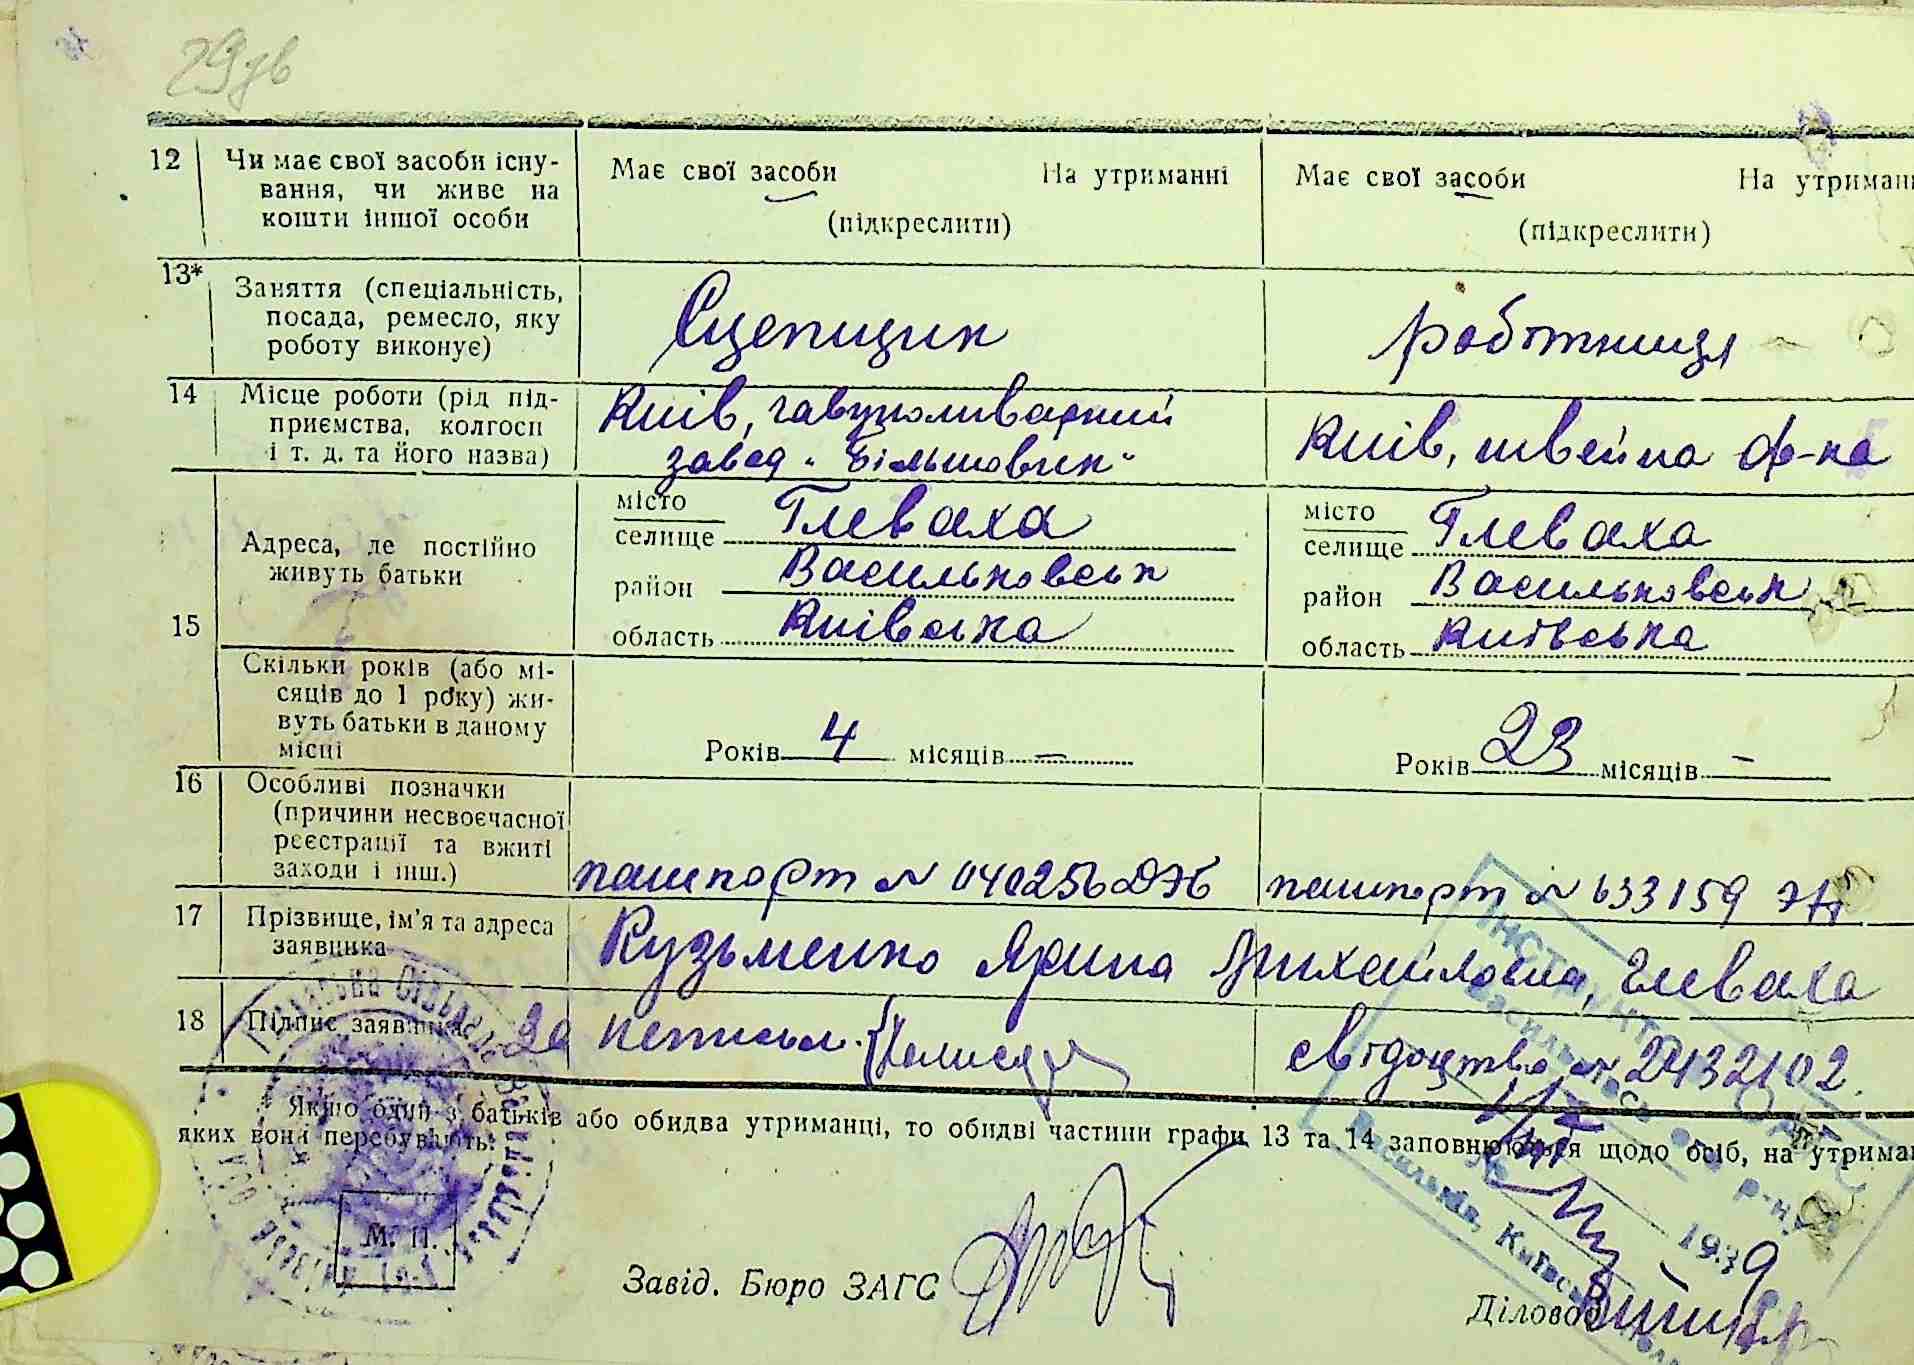 29 зв
12 Чи має свої засоби існу-
вання, чи живе на
кошти іншої особи
Має свої засоби На утриманні
(підкреслити)
Має свої засоби На утриманн
(підкреслити)
13* Заняття (спеціальність,
посада, ремесло, яку
роботу виконує)
Сцепщик
робітниця
14 Місце роботи (рід під-
приємства, колгосп
і т. д. та його назва)
Київ, чавуноливарний
завод „Більшовик"
Київ, швейна ф-ка
15 Адреса, де постійно
живуть батьки
місто
селище Глеваха
район Васильковськ
область Київська
місто
селище Глеваха
район Васильковськ
область Київська
Скільки років (або мі-
сяців до 1 року) жи-
вуть батьки в даному
місці
Років 4 місяців —
Років 23 місяців —
16 Особливі позначки
(причини несвоєчасної
реєстрації та вжиті
заходи і інш.)
пашпорт № 040256
пашпорт № 633159
17 Прізвище, ім'я та адреса
заявника
Кузьменко Ярина Михайловна, Глеваха
18 Підпис заявника
за неписьм.
свідоцтво № 2432102.
Якщо один з батьків або обидва утриманці, то обидві частини графи 13 та 14 заповнюються щодо осіб, на утриман
яких вони перебувають.
М. П.
Завід. Бюро ЗАГС
1939
Діловод